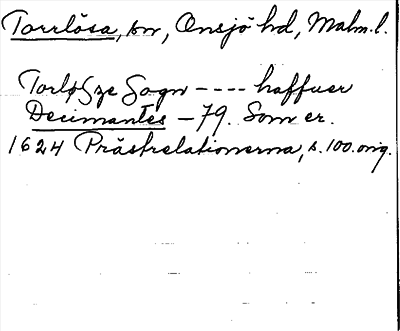 Torrlösa, sn, Onsjö hd, Malm.l.
Torløsze Sogn ---- haffuer
Decimantes - 79. Som er.
1624 Prästrelationerna, s. 100. orig.